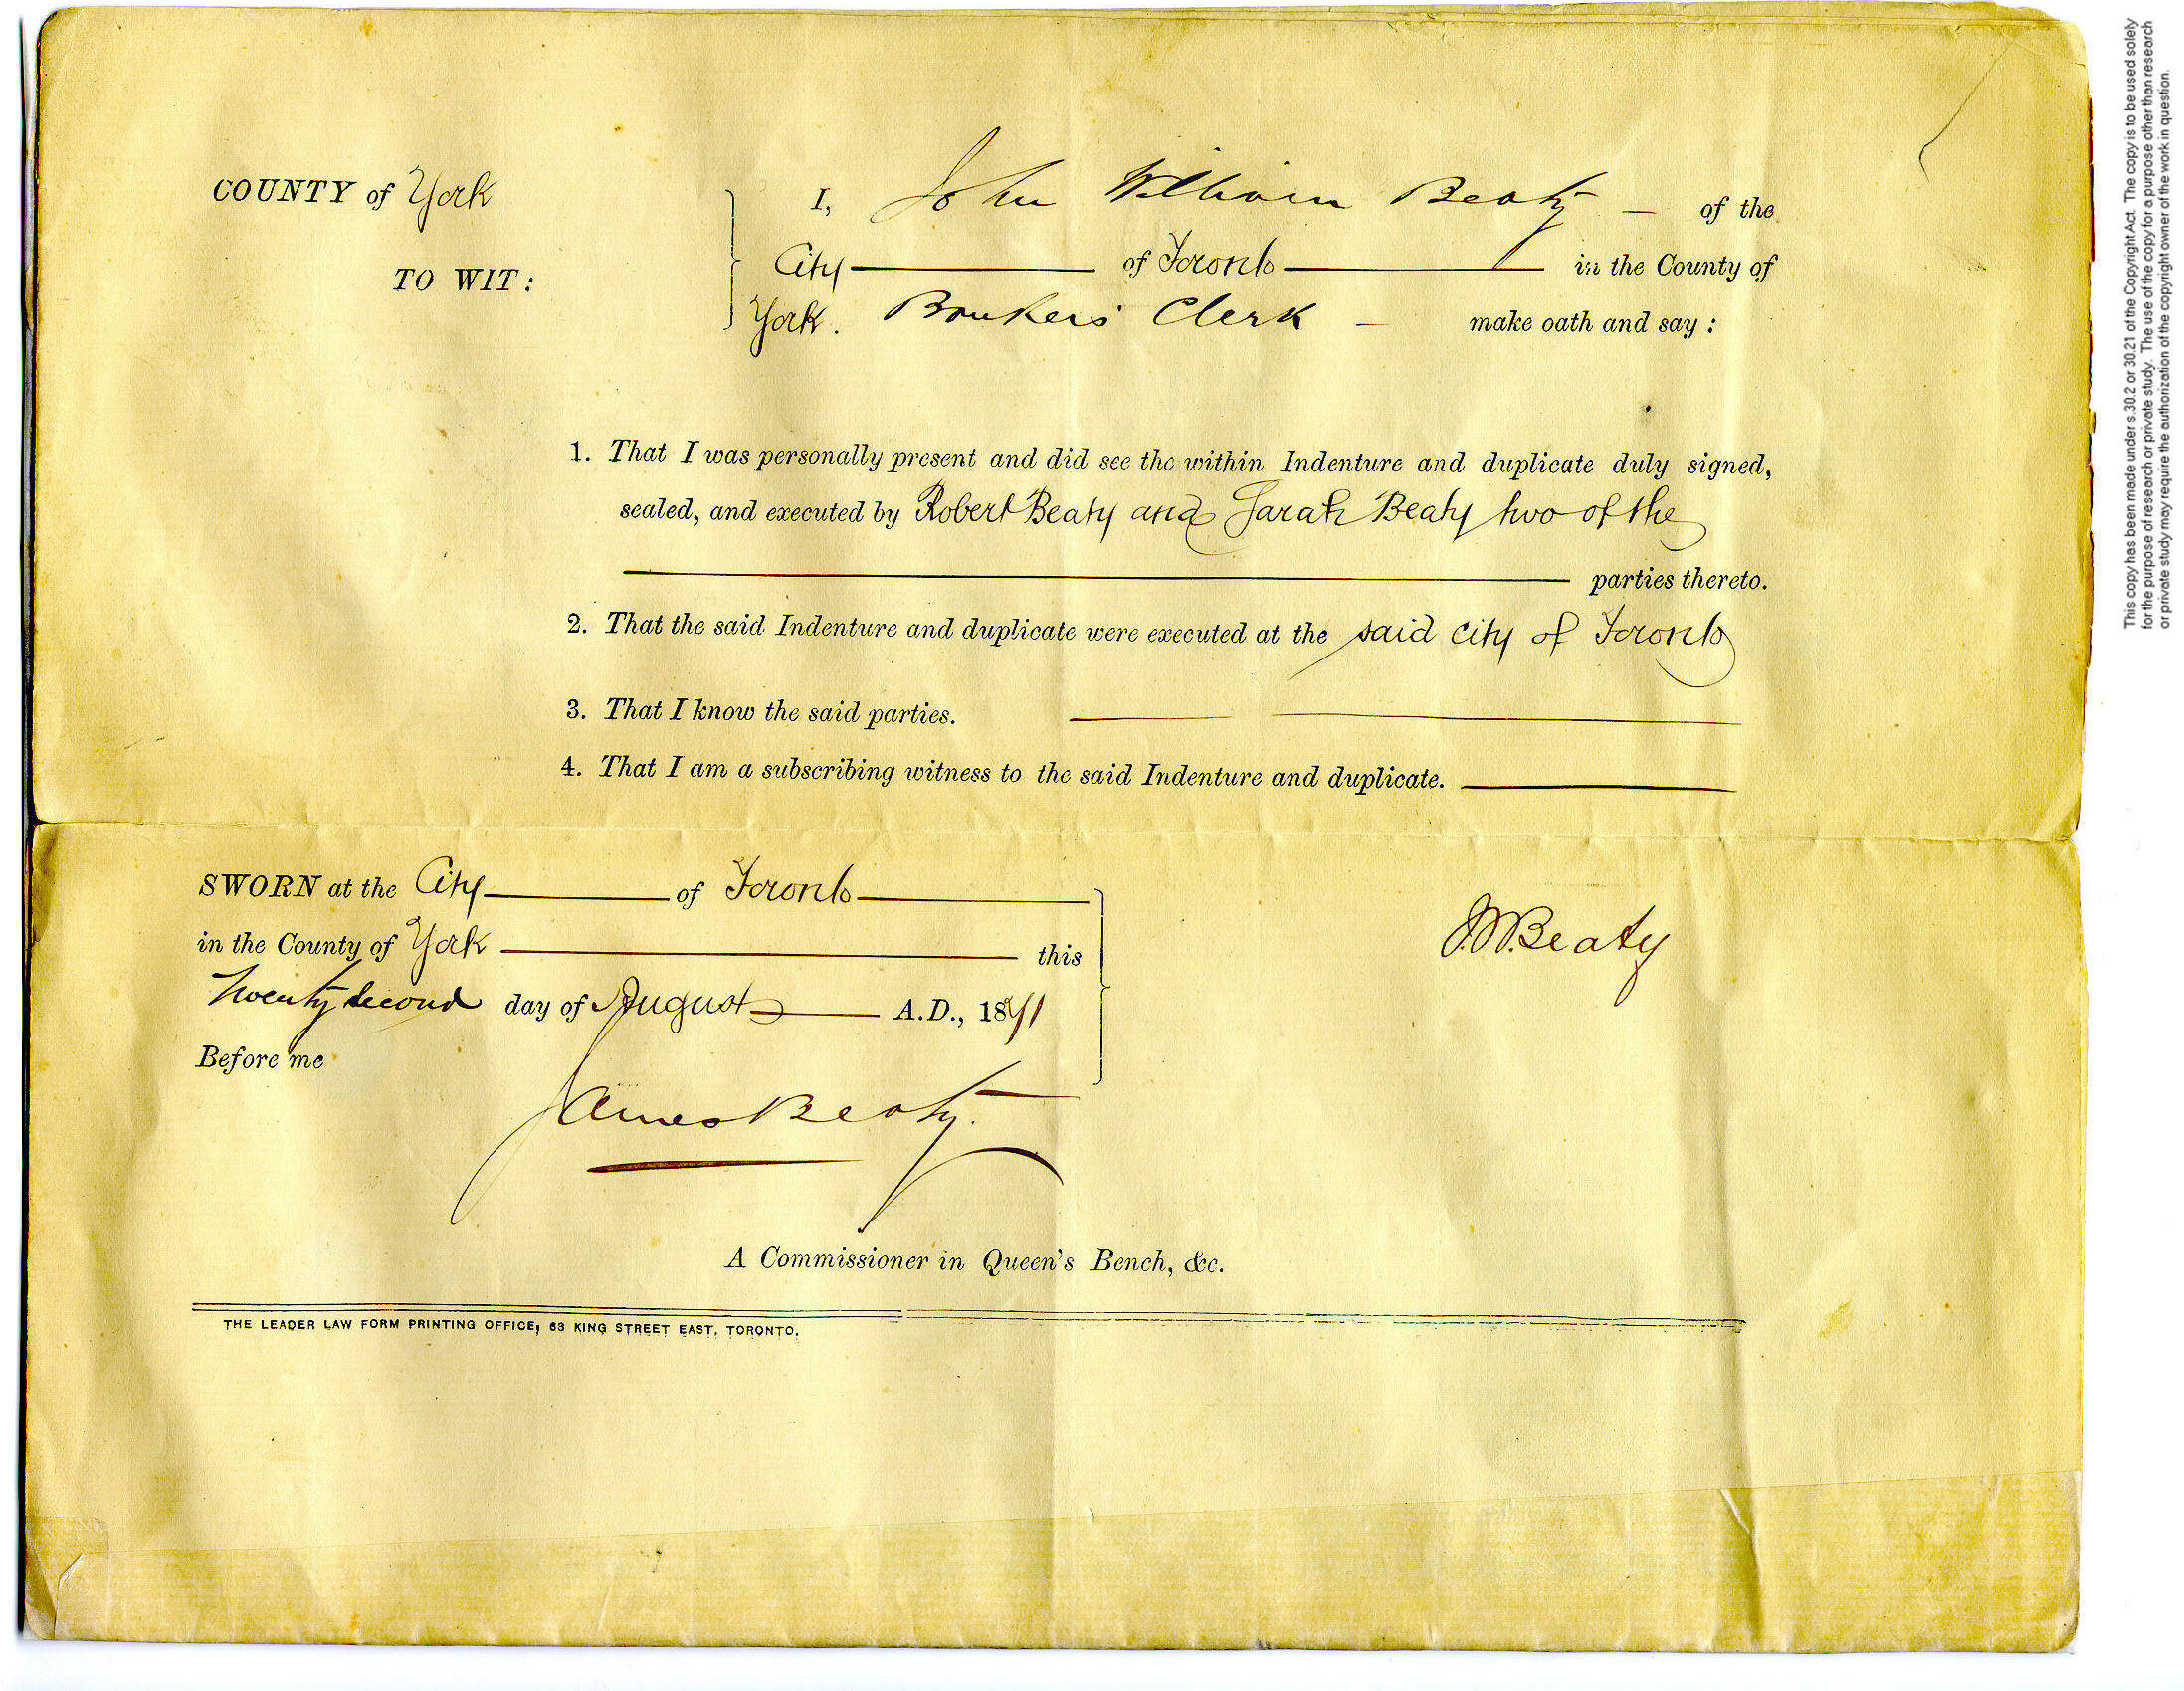 COUNTY of York
TO WIT:
I, John William Beaty of the
City of Toronto in the County of
York. Banker's Clerk make oath and say:
1. That I was personally present and did see the within Indenture and duplicate duly signed,
sealed, and executed by Robert Beaty and Sarah Beaty two of the
parties thereto.
2. That the said Indenture and duplicate were executed at the said City of Toronto
3. That I know the said parties.
4. That I am a subscribing witness to the said Indenture and duplicate.
SWORN at the City of Toronto
in the County of York this
Twenty second day of August A.D., 1871
Before me
J.W. Beaty
James Beaty.
A Commissioner in Queen's Bench, &c.
THE LEADER LAW FORM PRINTING OFFICE, 63 KING STREET EAST, TORONTO.
This copy has been made under s.30.2 or 30.21 of the Copyright Act. The copy is to be used solely
for the purpose of research or private study. The use of the copy for a purpose other than research
or private study may require the authorization of the copyright owner of the work in question.